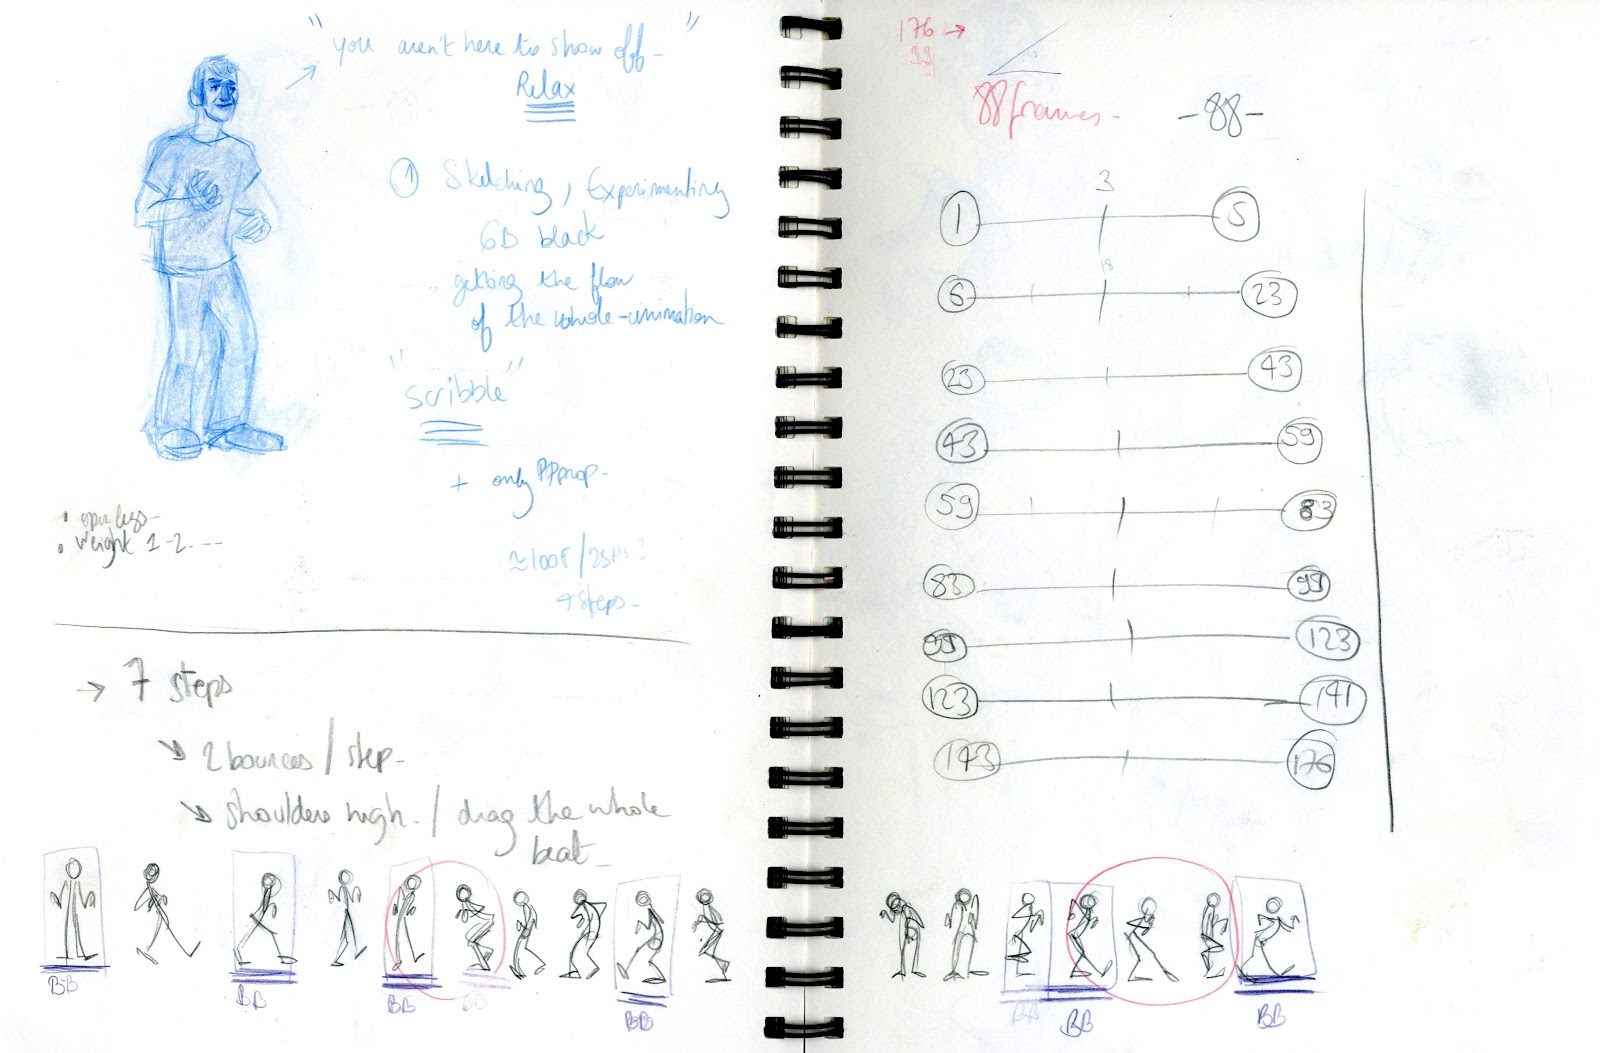 "you aren't here to show off -"
Relax
① Sketching, Experimenting
6B black
getting the flow
of the whole animation
"scribble"
+ only
• open legs -
• weight 1-2 ---
≈100F/25
4 steps -
→ 7 steps
↘ 2 bounces / step -
↘ shoulders high - / drag the whole
beat -
BB
BB
BB
BB
BB
176 →
88
88 frames -
- 88 -
1 3 5
6 18 23
23 43
43 59
59 83
83 99
99 123
123 141
143 176
BB
BB
BB